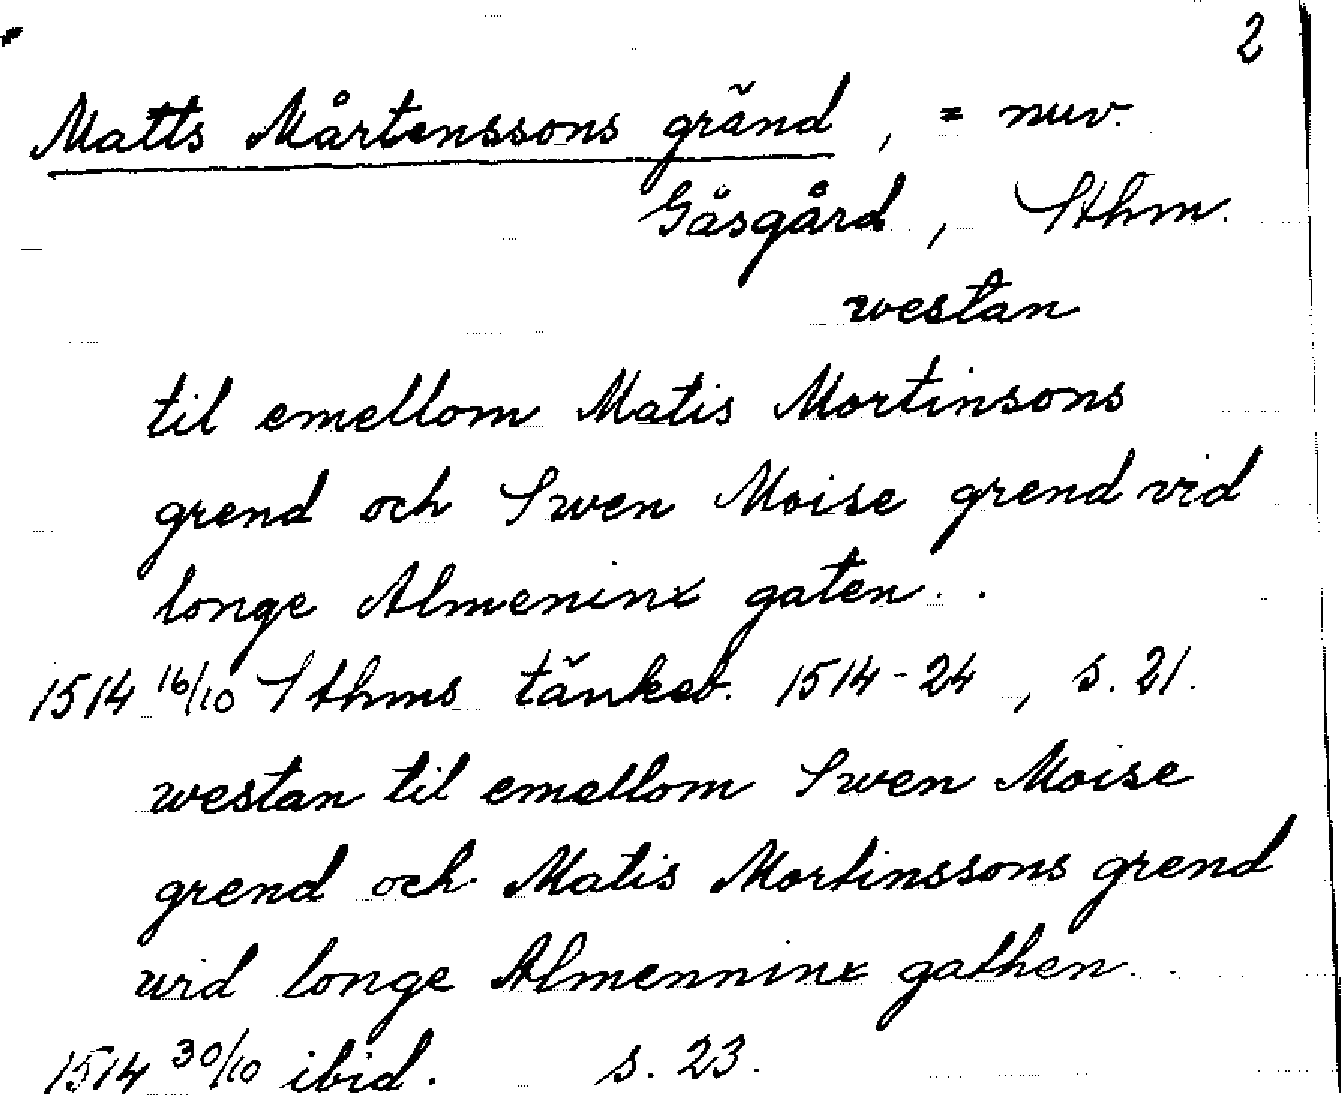 2
Matts Mårtenssons gränd, = nuv.
Gåsgård, Sthm.
westan
til emellom Matis Mortinsons
grend och Swen Moise grend vid
longe Almeninx gaten..
1514 16/10 Sthms tänkeb. 1514-24, s. 21.
westan til emellom Swen Moise
grend och Matis Mortinssons grend
wid longe Almenninx gathen..
1514 30/10 ibid. s. 23.